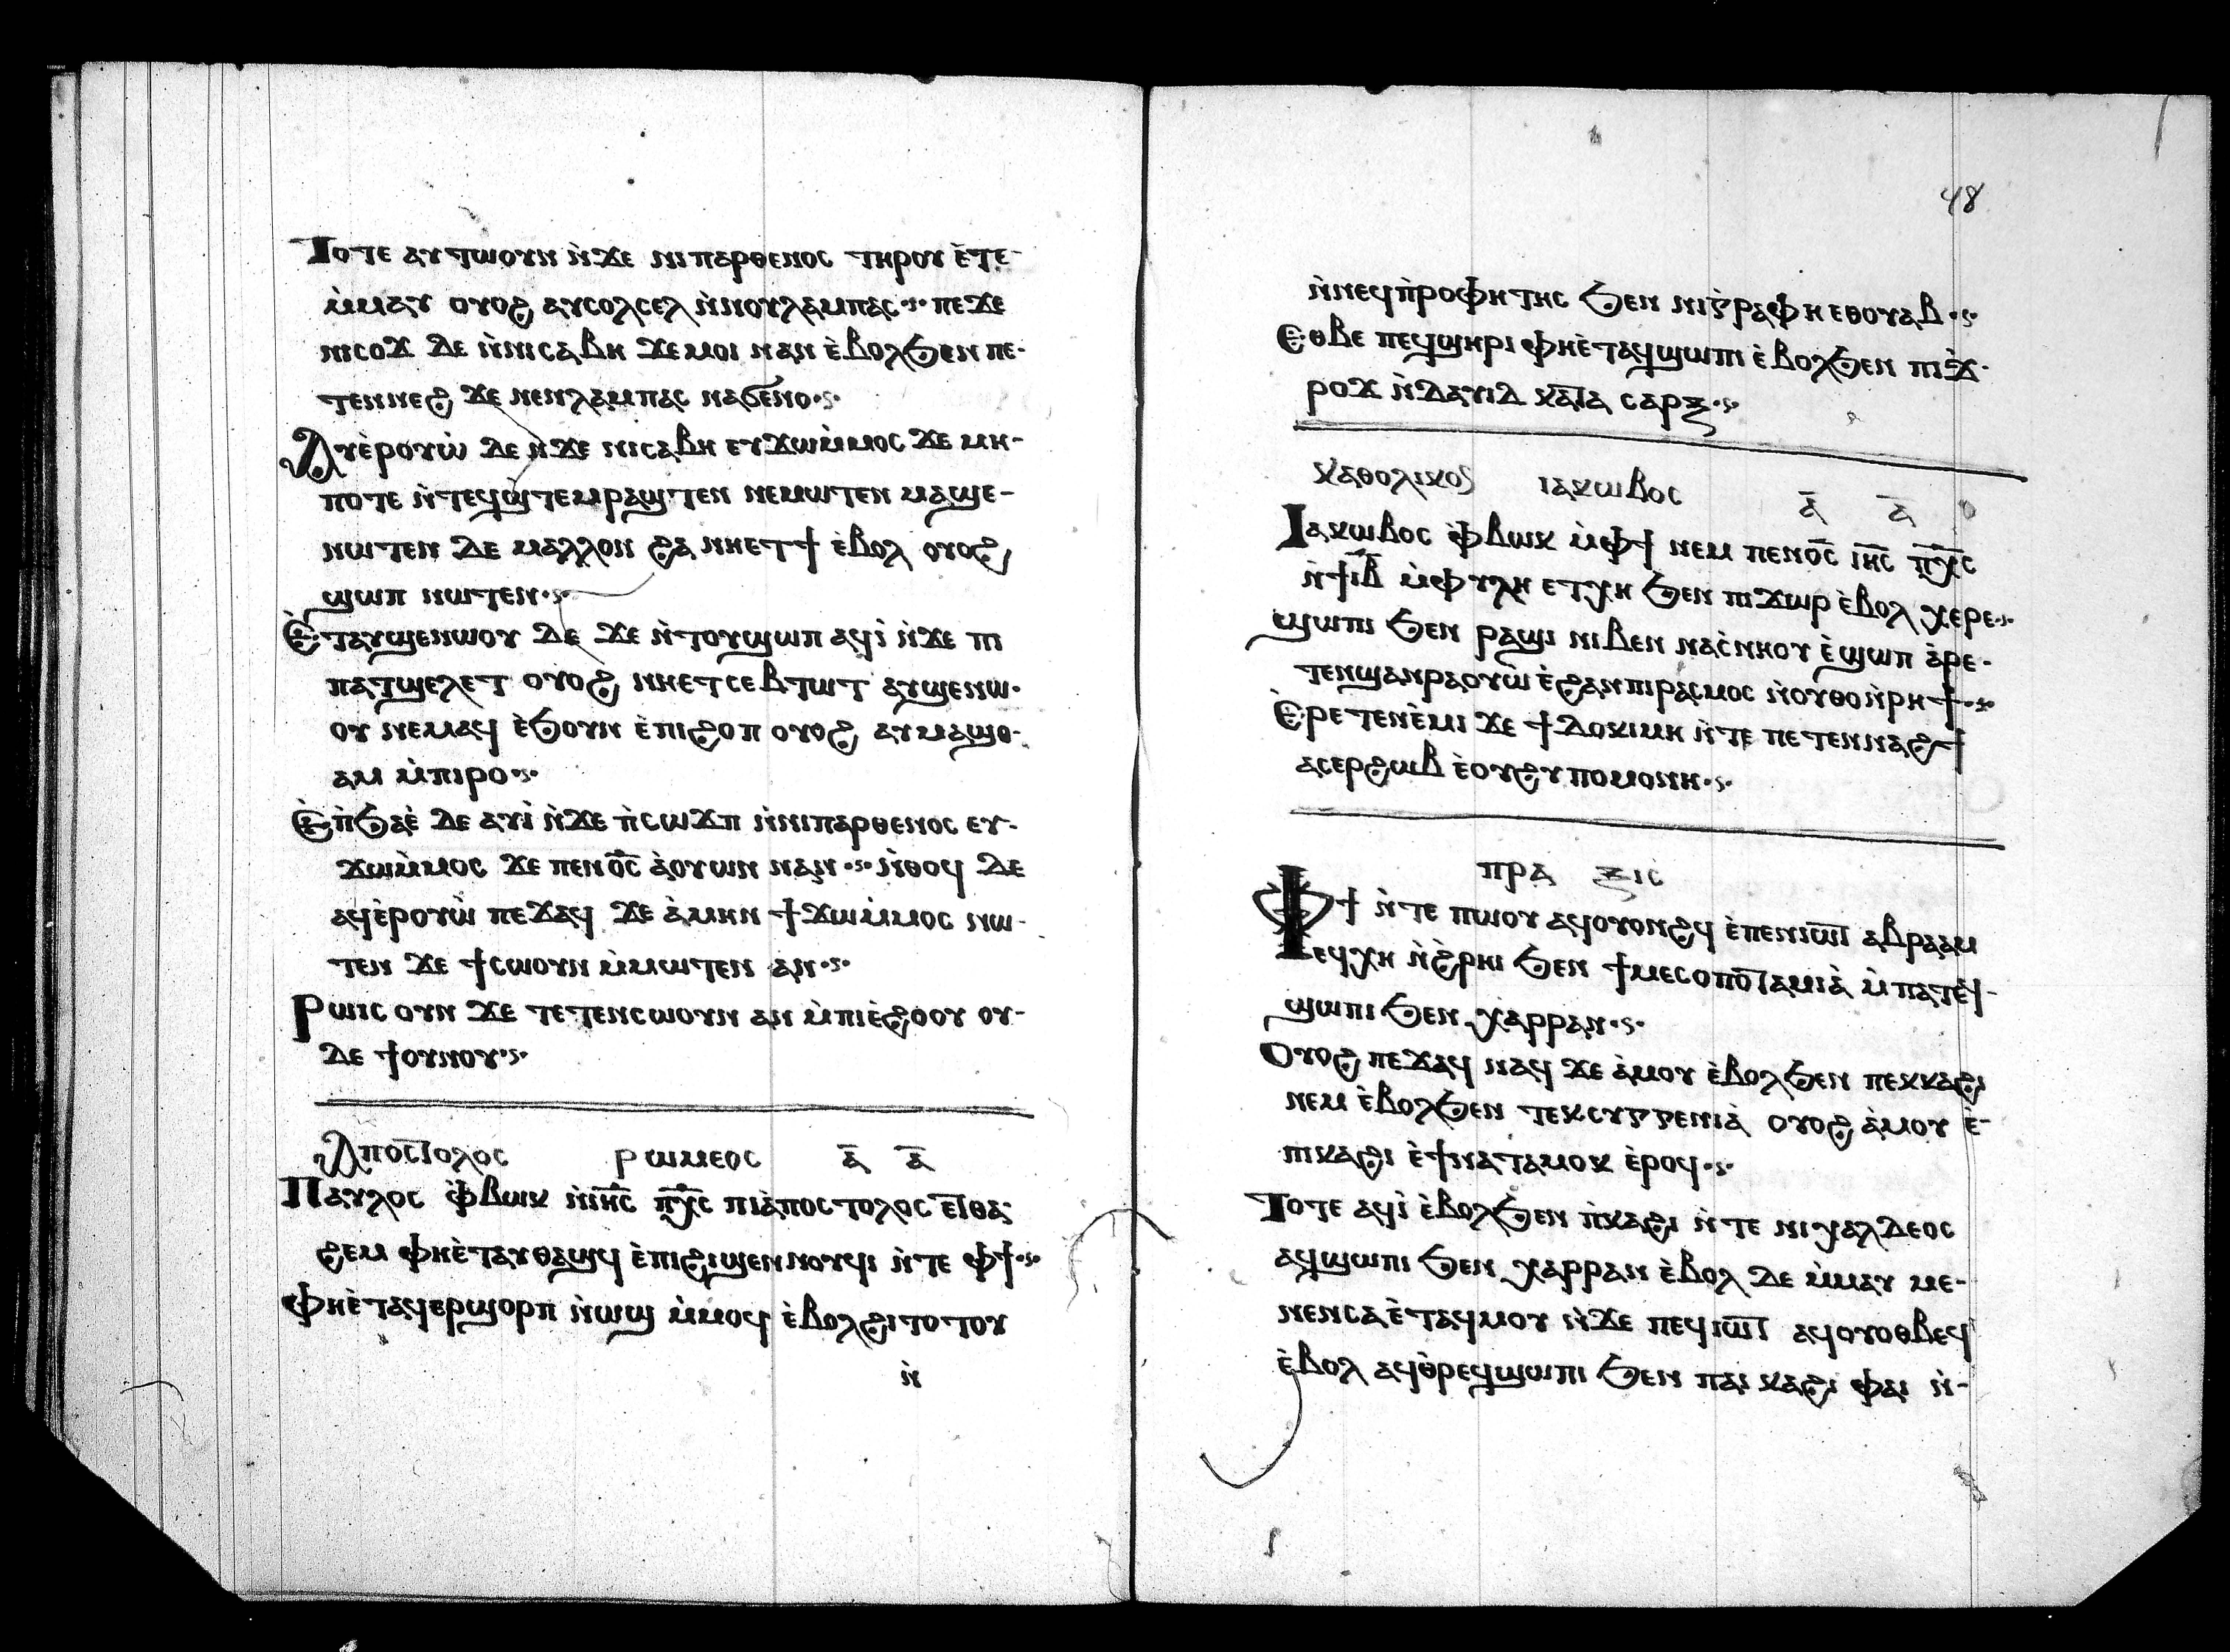 Ⲧⲟⲧⲉ ⲁⲩⲧⲱⲟⲩⲛ ⲛ̀ϫⲉ ⲛⲓⲡⲁⲣⲑⲉⲛⲟⲥ ⲧⲏⲣⲟⲩ ⲉ̀ⲧⲉ-
ⲙ̀ⲙⲁⲩ ⲟⲩⲟϩ ⲁⲩⲥⲟⲗⲥⲉⲗ ⲛ̀ⲛⲟⲩⲗⲁⲙⲡⲁⲥ ·:· ⲡⲉϫⲉ
ⲛⲓⲥⲟϫ ⲇⲉ ⲛ̀ⲛⲓⲥⲁⲃⲏ ϫⲉⲙⲟⲓ ⲛⲁⲛ ⲉ̀ⲃⲟⲗϧⲉⲛ ⲡⲉ-
ⲧⲉⲛⲛⲉϩ ϫⲉ ⲛⲉⲛⲗⲁⲙⲡⲁⲥ ⲛⲁϭⲉⲛⲟ ·:·
Ⲁⲩⲉ̀ⲣⲟⲩⲱ̀ ⲇⲉ ⲛ̀ϫⲉ ⲛⲓⲥⲁⲃⲏ ⲉⲩϫⲱⲙ̀ⲙⲟⲥ ϫⲉ ⲙⲏ-
ⲡⲟⲧⲉ ⲛ̀ⲧⲉϥϣ̀ⲧⲉⲙⲣⲁϣⲧⲉⲛ ⲛⲉⲙⲱⲧⲉⲛ ⲙⲁϣⲉ-
ⲛⲱⲧⲉⲛ ⲇⲉ ⲙⲁⲗⲗⲟⲛ ϩⲁ ⲛⲏⲉⲧϯ ⲉ̀ⲃⲟⲗ ⲟⲩⲟϩ
ϣⲱⲡ ⲛⲱⲧⲉⲛ ·:·
Ⲉ̀ⲧⲁⲩϣⲉⲛⲱⲟⲩ ⲇⲉ ϫⲉ ⲛ̀ⲧⲟⲩϣⲱⲡ ⲁϥⲓ̀ ⲛ̀ϫⲉ ⲡⲓ
ⲡⲁⲧϣⲉⲗⲉⲧ ⲟⲩⲟϩ ⲛⲏⲉⲧⲥⲉⲃⲧⲱⲧ ⲁⲩϣⲉⲛⲱ-
ⲟⲩ ⲛⲉⲙⲁϥ ⲉ̀ϧⲟⲩⲛ ⲉ̀ⲡⲓϩⲟⲡ ⲟⲩⲟϩ ⲁⲩⲙⲁϣⲑ-
ⲁⲙ ⲙ̀ⲡⲓⲣⲟ ·:·
Ⲉ̀ⲡ̀ϧⲁⲉ̀ ⲇⲉ ⲁⲩⲓ̀ ⲛ̀ϫⲉ ⲡ̀ⲥⲱϫⲡ ⲛ̀ⲛⲓⲡⲁⲣⲑⲉⲛⲟⲥ ⲉⲩ-
ϫⲱⲙ̀ⲙⲟⲥ ϫⲉ ⲡⲉⲛⲟ̅ⲥ̅ ⲁ̀ⲟⲩⲱⲛ ⲛⲁⲛ ·:· ⲛ̀ⲑⲟϥ ⲇⲉ
ⲁϥⲉ̀ⲣⲟⲩⲱ̀ ⲡⲉϫⲁϥ ϫⲉ ⲁ̀ⲙⲏⲛ ϯϫⲱⲙ̀ⲙⲟⲥ ⲛⲱ-
ⲧⲉⲛ ϫⲉ ϯⲥⲱⲟⲩⲛ ⲙ̀ⲙⲱⲧⲉⲛ ⲁⲛ ·:·
Ⲣⲱⲓⲥ ⲟⲩⲛ ϫⲉ ⲧⲉⲧⲉⲛⲥⲱⲟⲩⲛ ⲁⲛ ⲙ̀ⲡⲓⲉ̀ϩⲟⲟⲩ ⲟⲩ-
ⲇⲉ ϯⲟⲩⲛⲟⲩ ·:·
Ⲁⲡⲟⲥⲧⲟⲗⲟⲥ ⲣⲱⲙⲉⲟⲥ ⲁ̅ ⲁ̅
Ⲡⲁⲩⲗⲟⲥ ⲫ̀ⲃⲱⲕ ⲛ̀ⲓⲏ̅ⲥ̅ ⲡ̅ⲭ̅ⲥ̅ ⲡⲓⲁ̀ⲡⲟⲥⲧⲟⲗⲟⲥ ⲉⲧⲑⲁ-
ϩⲉⲙ ⲫⲏⲉ̀ⲧⲁⲩⲑⲁϣϥ ⲉ̀ⲡⲓϩⲓϣⲉⲛⲛⲟⲩϥⲓ ⲛ̀ⲧⲉ ⲫϯ ·:·
Ⲫⲏⲉ̀ⲧⲁϥⲉⲣϣⲟⲣⲡ ⲛ̀ⲱϣ ⲙ̀ⲙⲟϥ ⲉ̀ⲃⲟⲗϩⲓⲧⲟⲧⲟⲩ
ⲛ̀
48
ⲛ̀ⲛⲉϥⲡ̀ⲣⲟⲫⲏⲧⲏⲥ ϧⲉⲛ ⲛⲓⲅⲣⲁⲫⲏ ⲉⲑⲟⲩⲁⲃ ·:·
Ⲉⲑⲃⲉ ⲡⲉϥϣⲏⲣⲓ ⲫⲏⲉ̀ⲧⲁϥϣⲱⲡⲓ ⲉ̀ⲃⲟⲗϧⲉⲛ ⲡⲓϫ̀-
ⲣⲟϫ ⲛ̀ⲇⲁⲩⲓⲇ ⲕⲁⲧⲁ ⲥⲁⲣⲝ ·:·
ⲕⲁⲑⲟⲗⲓⲕⲟⲥ ⲓⲁⲕⲱⲃⲟⲥ ⲁ̅ ⲁ̅
Ⲓⲁⲕⲱⲃⲟⲥ ⲫ̀ⲃⲱⲕ ⲙ̀ⲫϯ ⲛⲉⲙ ⲡⲉⲛⲟ̅ⲥ̅ ⲓⲏ̅ⲥ̅ ⲡ̅ⲭ̅ⲥ̅
ⲛ̀ϯⲓ̅ⲃ̅ ⲙ̀ⲫⲩⲗⲏ ⲉⲧⲭⲏ ϧⲉⲛ ⲡⲓϫⲱⲣ ⲉ̀ⲃⲟⲗ ⲭⲉⲣⲉ ·:·
ϣⲱⲡⲓ ϧⲉⲛ ⲣⲁϣⲓ ⲛⲓⲃⲉⲛ ⲛⲁⲥ̀ⲛⲏⲟⲩ ⲉ̀ϣⲱⲡ ⲁ̀ⲣⲉ-
ⲧⲉⲛϣⲁⲛⲣⲁⲟⲩⲱ̀ ⲉ̀ϩⲁⲛⲡⲓⲣⲁⲥⲙⲟⲥ ⲛ̀ⲟⲩⲑⲟⲛ̀ⲣⲏϯ ·:·
Ⲉ̀ⲣⲉⲧⲉⲛⲉ̀ⲙⲓ ϫⲉ ϯⲇⲟⲕⲓⲙⲏ ⲛ̀ⲧⲉ ⲡⲉⲧⲉⲛⲛⲁϩϯ
ⲁⲥⲉⲣϩⲱⲃ ⲉ̀ⲟⲩϩⲩⲡⲟⲙⲟⲛⲏ ·:·
ⲡⲣⲁ ⲝⲓⲥ
Ⲫϯ ⲛ̀ⲧⲉ ⲡⲱⲟⲩ ⲁϥⲟⲩⲟⲛϩϥ ⲉ̀ⲡⲉⲛⲓⲱⲧ ⲁⲃⲣⲁⲁⲙ
ⲉϥⲭⲏ ⲛ̀ϩ̀ⲣⲏⲓ ϧⲉⲛ ϯⲙⲉⲥⲟⲡⲟⲧⲁⲙⲓⲁ̀ ⲙ̀ⲡⲁⲧⲉϥ-
ϣⲱⲡⲓ ϧⲉⲛ ⲭⲁⲣⲣⲁⲛ ·:·
Ⲟⲩⲟϩ ⲡⲉϫⲁϥ ⲛⲁϥ ϫⲉ ⲁ̀ⲙⲟⲩ ⲉ̀ⲃⲟⲗϧⲉⲛ ⲡⲉⲕⲕⲁϩⲓ
ⲛⲉⲙ ⲉ̀ⲃⲟⲗϧⲉⲛ ⲧⲉⲕⲥⲩⲅⲅⲉⲛⲓⲁ̀ ⲟⲩⲟϩ ⲁ̀ⲙⲟⲩ ⲉ̀-
ⲡⲓⲕⲁϩⲓ ⲉ̀ϯⲛⲁⲧⲁⲙⲟⲕ ⲉ̀ⲣⲟϥ ·:·
Ⲧⲟⲧⲉ ⲁϥⲓ̀ ⲉ̀ⲃⲟⲗϧⲉⲛ ⲡ̀ⲕⲁϩⲓ ⲛ̀ⲧⲉ ⲛⲓⲭⲁⲗⲇⲉⲟⲥ
ⲁϥϣⲱⲡⲓ ϧⲉⲛ ⲭⲁⲣⲣⲁⲛ ⲉ̀ⲃⲟⲗ ⲇⲉ ⲙ̀ⲙⲁⲩ ⲙⲉ-
ⲛⲉⲛⲥⲁⲉ̀ⲧⲁϥⲙⲟⲩ ⲛ̀ϫⲉ ⲡⲉϥⲓⲱⲧ ⲁϥⲟⲩⲟⲑⲃⲉϥ
ⲉ̀ⲃⲟⲗ ⲁϥⲑ̀ⲣⲉϥϣⲱⲡⲓ ϧⲉⲛ ⲡⲁⲓ ⲕⲁϩⲓ ⲫⲁⲓ ⲛ̀-